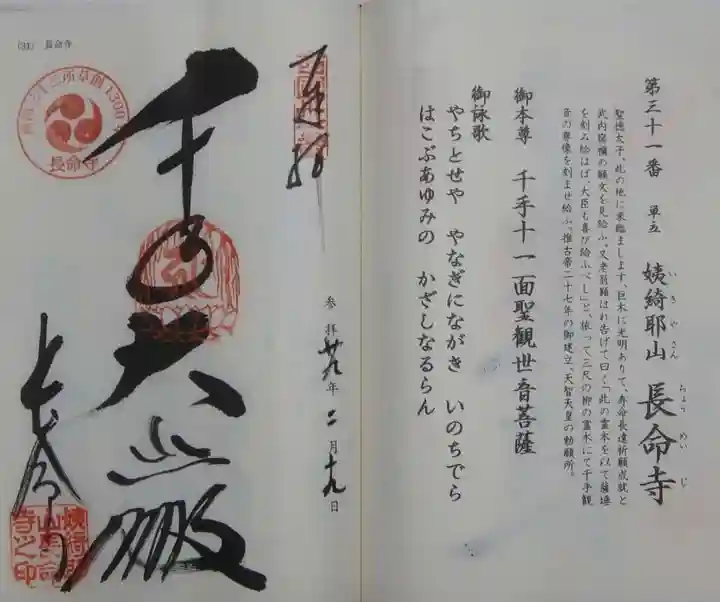 第三十一番 単立 姨綺耶山 長命寺
いきやさん ちょうめいじ
聖徳太子、此の地に来臨まします、巨木に光明ありて、寿命長遠祈願成就と
武内宿禰の願文を見給ふ、又老翁顕はれ告げて曰く「此の霊木を以て薩埵
を刻み給はば、大臣も喜び給ふべし」と、依って三尺の柳の霊木にて千手観
音の尊像を刻ませ給ふ、推古帝二十七年の御建立、天智天皇の勅願所。
御本尊 千手十一面聖観世音菩薩
御詠歌
やちとせや やなぎにながき いのちでら
はこぶあゆみの かざしなるらん
(31) 長命寺
西国三十三所草創1300年
長命寺
奉拝
参拝 廿九年 二月 十九日
千手大悲殿
長命寺
姨綺耶山長命寺之印